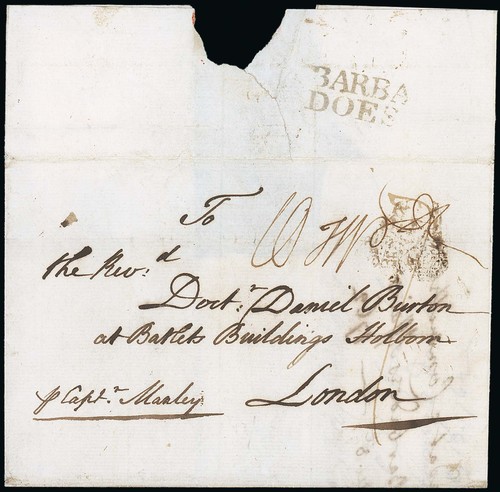 BARBA
DOES
To
the Rev:d
Doct:r Daniel Burton
at Batlets Buildings Holborn
London
p Capt:n Manley